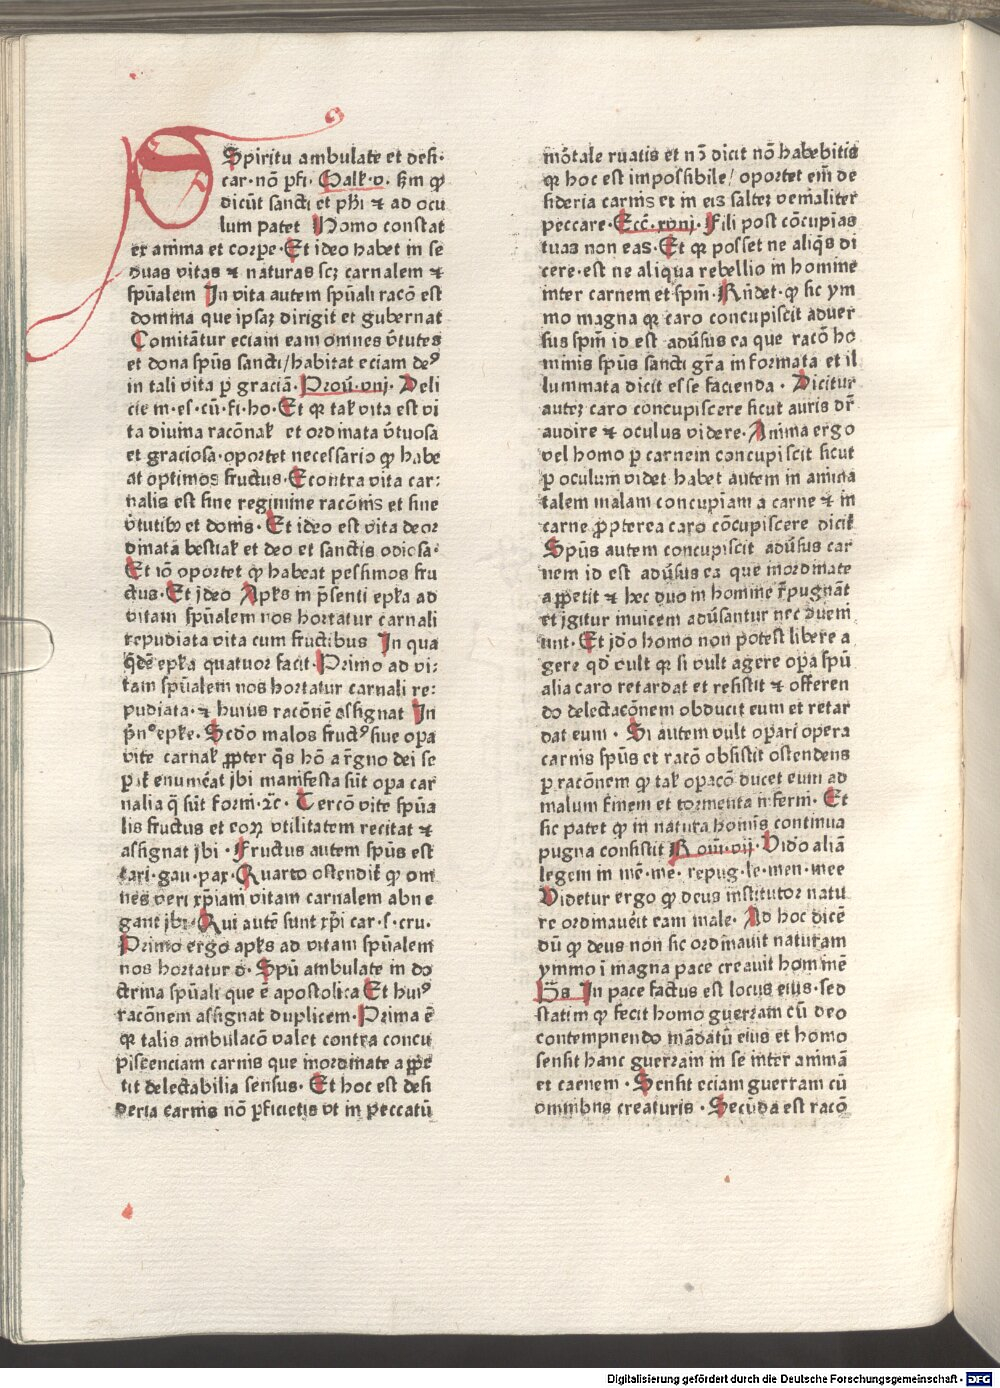 Spiritu ambulate et desi·
car· nō ꝑfi. Galꝭ· v· ẜm ꝙ
dicūt sancti et pħi ⁊ ad ocu
lum patet Homo constat
ex anima et corpe· Et ideo habet in se
duas vitas ⁊ naturas scꝫ carnalem ⁊
spūalem In vita autem spūali racō est
domina que ipsaꝫ dirigit et gubernat
Comitātur eciam eam omnes v̄tutes
et dona spūs sancti/habitat eciam deꝰ
in tali vita ꝑ graciā· Prou̅· viij· Deli
cie m· es· cū· fi· ho· Et qꝛ talꝭ vita est vi
ta diuina racōnalꝭ et ordinata v̄tuosa
et graciosa· oportet necessario ꝙ habe
at optimos fructus· Econtra vita car:
nalis est sine regimine racōnis et sine
v̄tutibꝫ et donis· Et ideo est vita deor
dinata bestialꝭ et deo et sanctis odiosa·
Et iō oportet ꝙ habeat pessimos fru
ctus· Et jdeo Apls in p̄senti epla ad
vitam spūalem nos hortatur carnali
repudiata vita cum fructibus In qua
q̄dē epla quatuor facit· Primo ad vi:
tam spūalem nos hortatur carnali re:
pudiata· ⁊ huius racōnē assignat In
p̄nº eplꝭe· Scdo malos fructꝰ siue opa
vite carnalꝭ ꝓpter q̄s hō a r̄gno dei se
ꝑit enum̄eat jbi manifesta sūt opa car
nalia q̄ sūt forni· ⁊c̄· Tercō vite spūa
lis fructus et eoꝝ vtilitatem recitat ⁊
assignat jbi· Fructus autem spūs est
kari· gau· pax· Quarto ostendit ꝙ om
nes veri xp̄iani vitam carnalem abne
gant jbi· Qui autē sunt xp̄i car· s· cru·
Primo ergo apls ad vitam spūalem
nos hortatur d· Spū ambulate in do
ctrina spūali que ē apostolica Et huiꝰ
racōnem assignat duplicem· Prima ē
qꝛ talis ambulacō valet contra concu
piscenciam carnis que inordinate appe
tit delectabilia sensus· Et hoc est desi
deria carnis nō ꝑficietis vt in peccatū
mōtale ruatis et nō dicit nō habebitis
qꝛ hoc est impossibile/ oportet em̄ de
sideria carnis et in eis salteꝫ venialiter
peccare· Eccͥ· xviij· Fili post cōcupīas
tuas non eas· Et qꝛ posset ne aliq̄s di
cere· est ne aliqua rebellio in homine
inter carnem et spm̄· Rn̄det· ꝙ sic ym
mo magna qꝛ caro concupiscit aduer
sus spm̄ id est adūsus ea que racō ho
minis spūs sancti gr̄a informata et il
luminata dicit esse facienda· Dicitur
auteꝫ caro concupiscere sicut auris dr̄
audire ⁊ oculus videre· Anima ergo
vel homo ꝑ carnem concupiscit sicut
ꝑ oculum videt habet autem in anima
talem malam concupīam a carne ⁊ in
carne ꝓpterea caro cōcupiscere dicit̄
Spūs autem concupiscit adūsus car
nem id est adūsus ea que inordinate
appetit ⁊ hec duo in homine r̄pugnāt
et jgitur inuicem adūsantur nec dueni
unt· Et jdo homo non potest libere a
gere qd̄ vult qꝛ si vult agere opa spū
alia caro retardat et resistit ⁊ offeren
do delectacōnem obducit eum et retar
dat eum· Si autem vult opari opera
carnis spūs et racō obsistit ostendens
ꝑ racōnem ꝙ talꝭ opacō ducet eum ad
malum finem et tormenta inferni· Et
sic patet ꝙ in natura hominis continua
pugna consistit Rom̄· vij· Vido aliā
legem in mē· me· repug· le· men· mee
Videtur ergo ꝙ deus institutor natu
re ordinauerit eam male· Ad hoc dicē
dū ꝙ deus non sic ordinauit naturam
ymmo ī magna pace creauit hominē
Vn̄s In pace factus est locus eius· sed
statim ꝙ fecit homo guerram cū deo
contempnendo mādatū eius et homo
sensit hanc guerram in se inter animā
et carnem· Sensit eciam guerram cū
omnibus creaturis· Secūda est racō
Digitalisierung gefördert durch die Deutsche Forschungsgemeinschaft - DFG